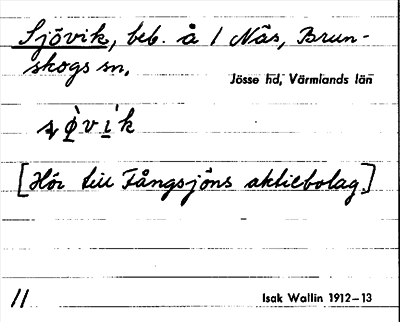 Sjövik, beb. å 1 Nås, Brun-
skogs sn.
Jösse hd, Värmlands län
[Hör till Fångsjöns aktiebolag.]
11
Isak Wallin 1912–13